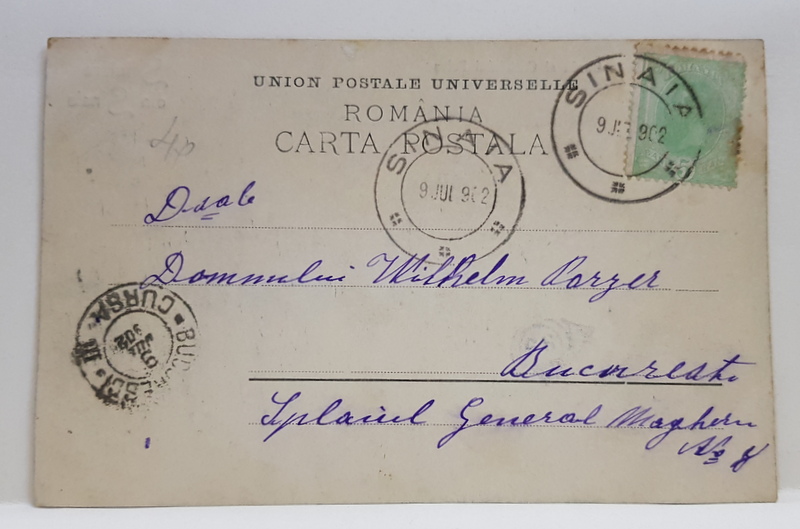 UNION POSTALE UNIVERSELLE
ROMÂNIA
CARTA POSTALA
SINAIA
9 JUL 902
SINAIA
9 JUL 902
40
Domnului Wilhelm Porzer
BUCURESCI III CURSA
902
Bucuresti
Splaiul General Magheru
No 8